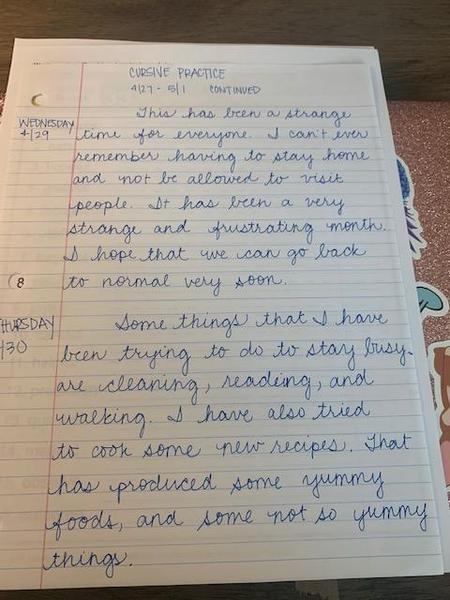 CURSIVE PRACTICE
4/27 - 5/1 CONTINUED
WEDNESDAY
4/29
This has been a strange
time for everyone. I can't ever
remember having to stay home
and not be allowed to visit
people. It has been a very
strange and frustrating month.
I hope that we can go back
to normal very soon.
8
THURSDAY
4/30
Some things that I have
been trying to do to stay busy
are cleaning, readeing, and
walking. I have also tried
to cook some new recipes. That
has produced some yummy
foods, and some not so yummy
things.